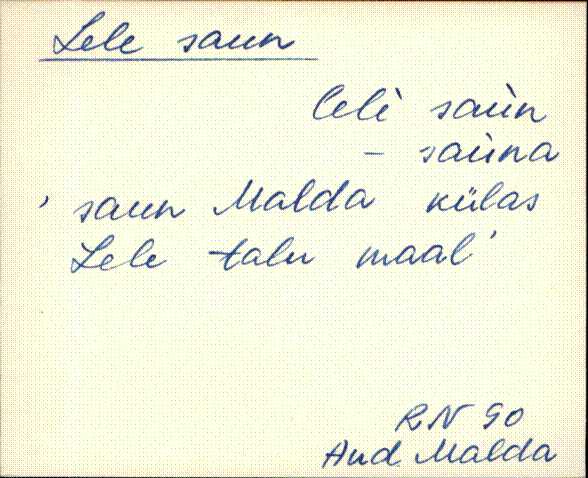 Lele saun
leli̬ saùn
– saùna
' saun Malda külas
Lele talu maal '
RN 90
Aud Malda